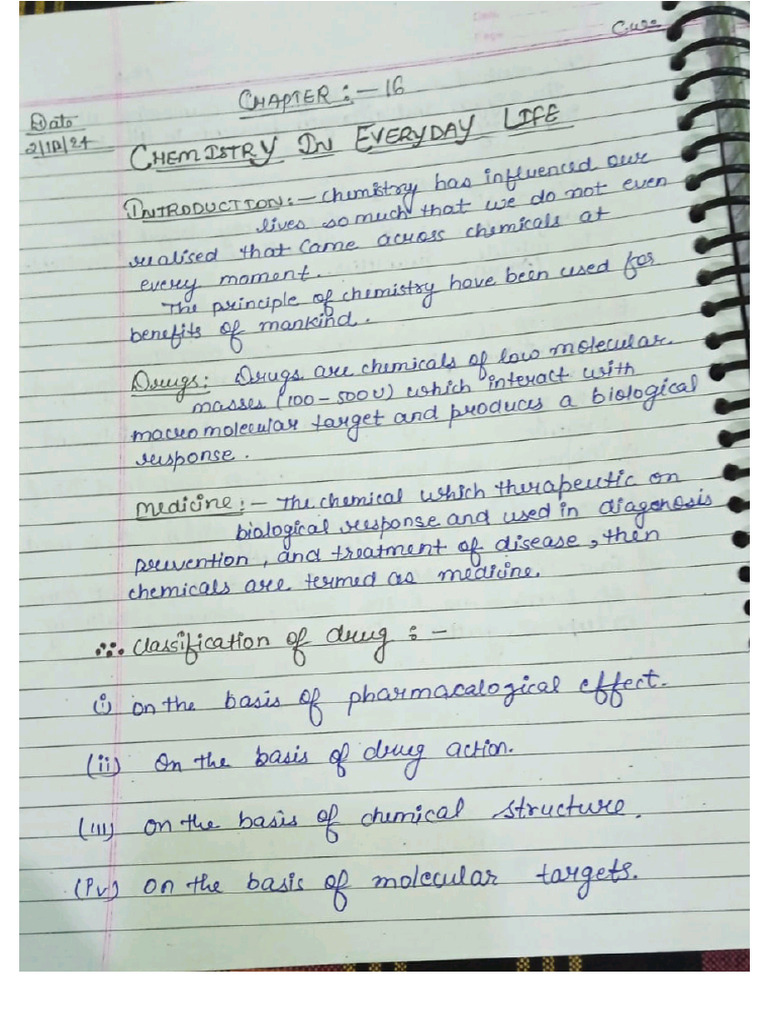 C.W.
CHAPTER :- 16
Date
2/10/24
CHEMISTRY IN EVERYDAY LIFE
INTRODUCTION:- Chemistry has influenced our
lives so much that we do not even
realised that came across chemicals at
every moment.
The principle of chemistry have been used for
benefits of mankind.
Drugs: Drugs are chemicals of low molecular
masses (100-500U) which interact with
macromolecular target and produces a biological
response.
Medicine:- The chemical which therapeutic on
biological response and used in diagonosis
prevention, and treatment of disease, then
chemicals are termed as medicine.
Classification of drug :-
(i) on the basis of pharmacalogical effect.
(ii) On the basis of drug action.
(iii) on the basis of chemical structure.
(iv) on the basis of molecular targets.